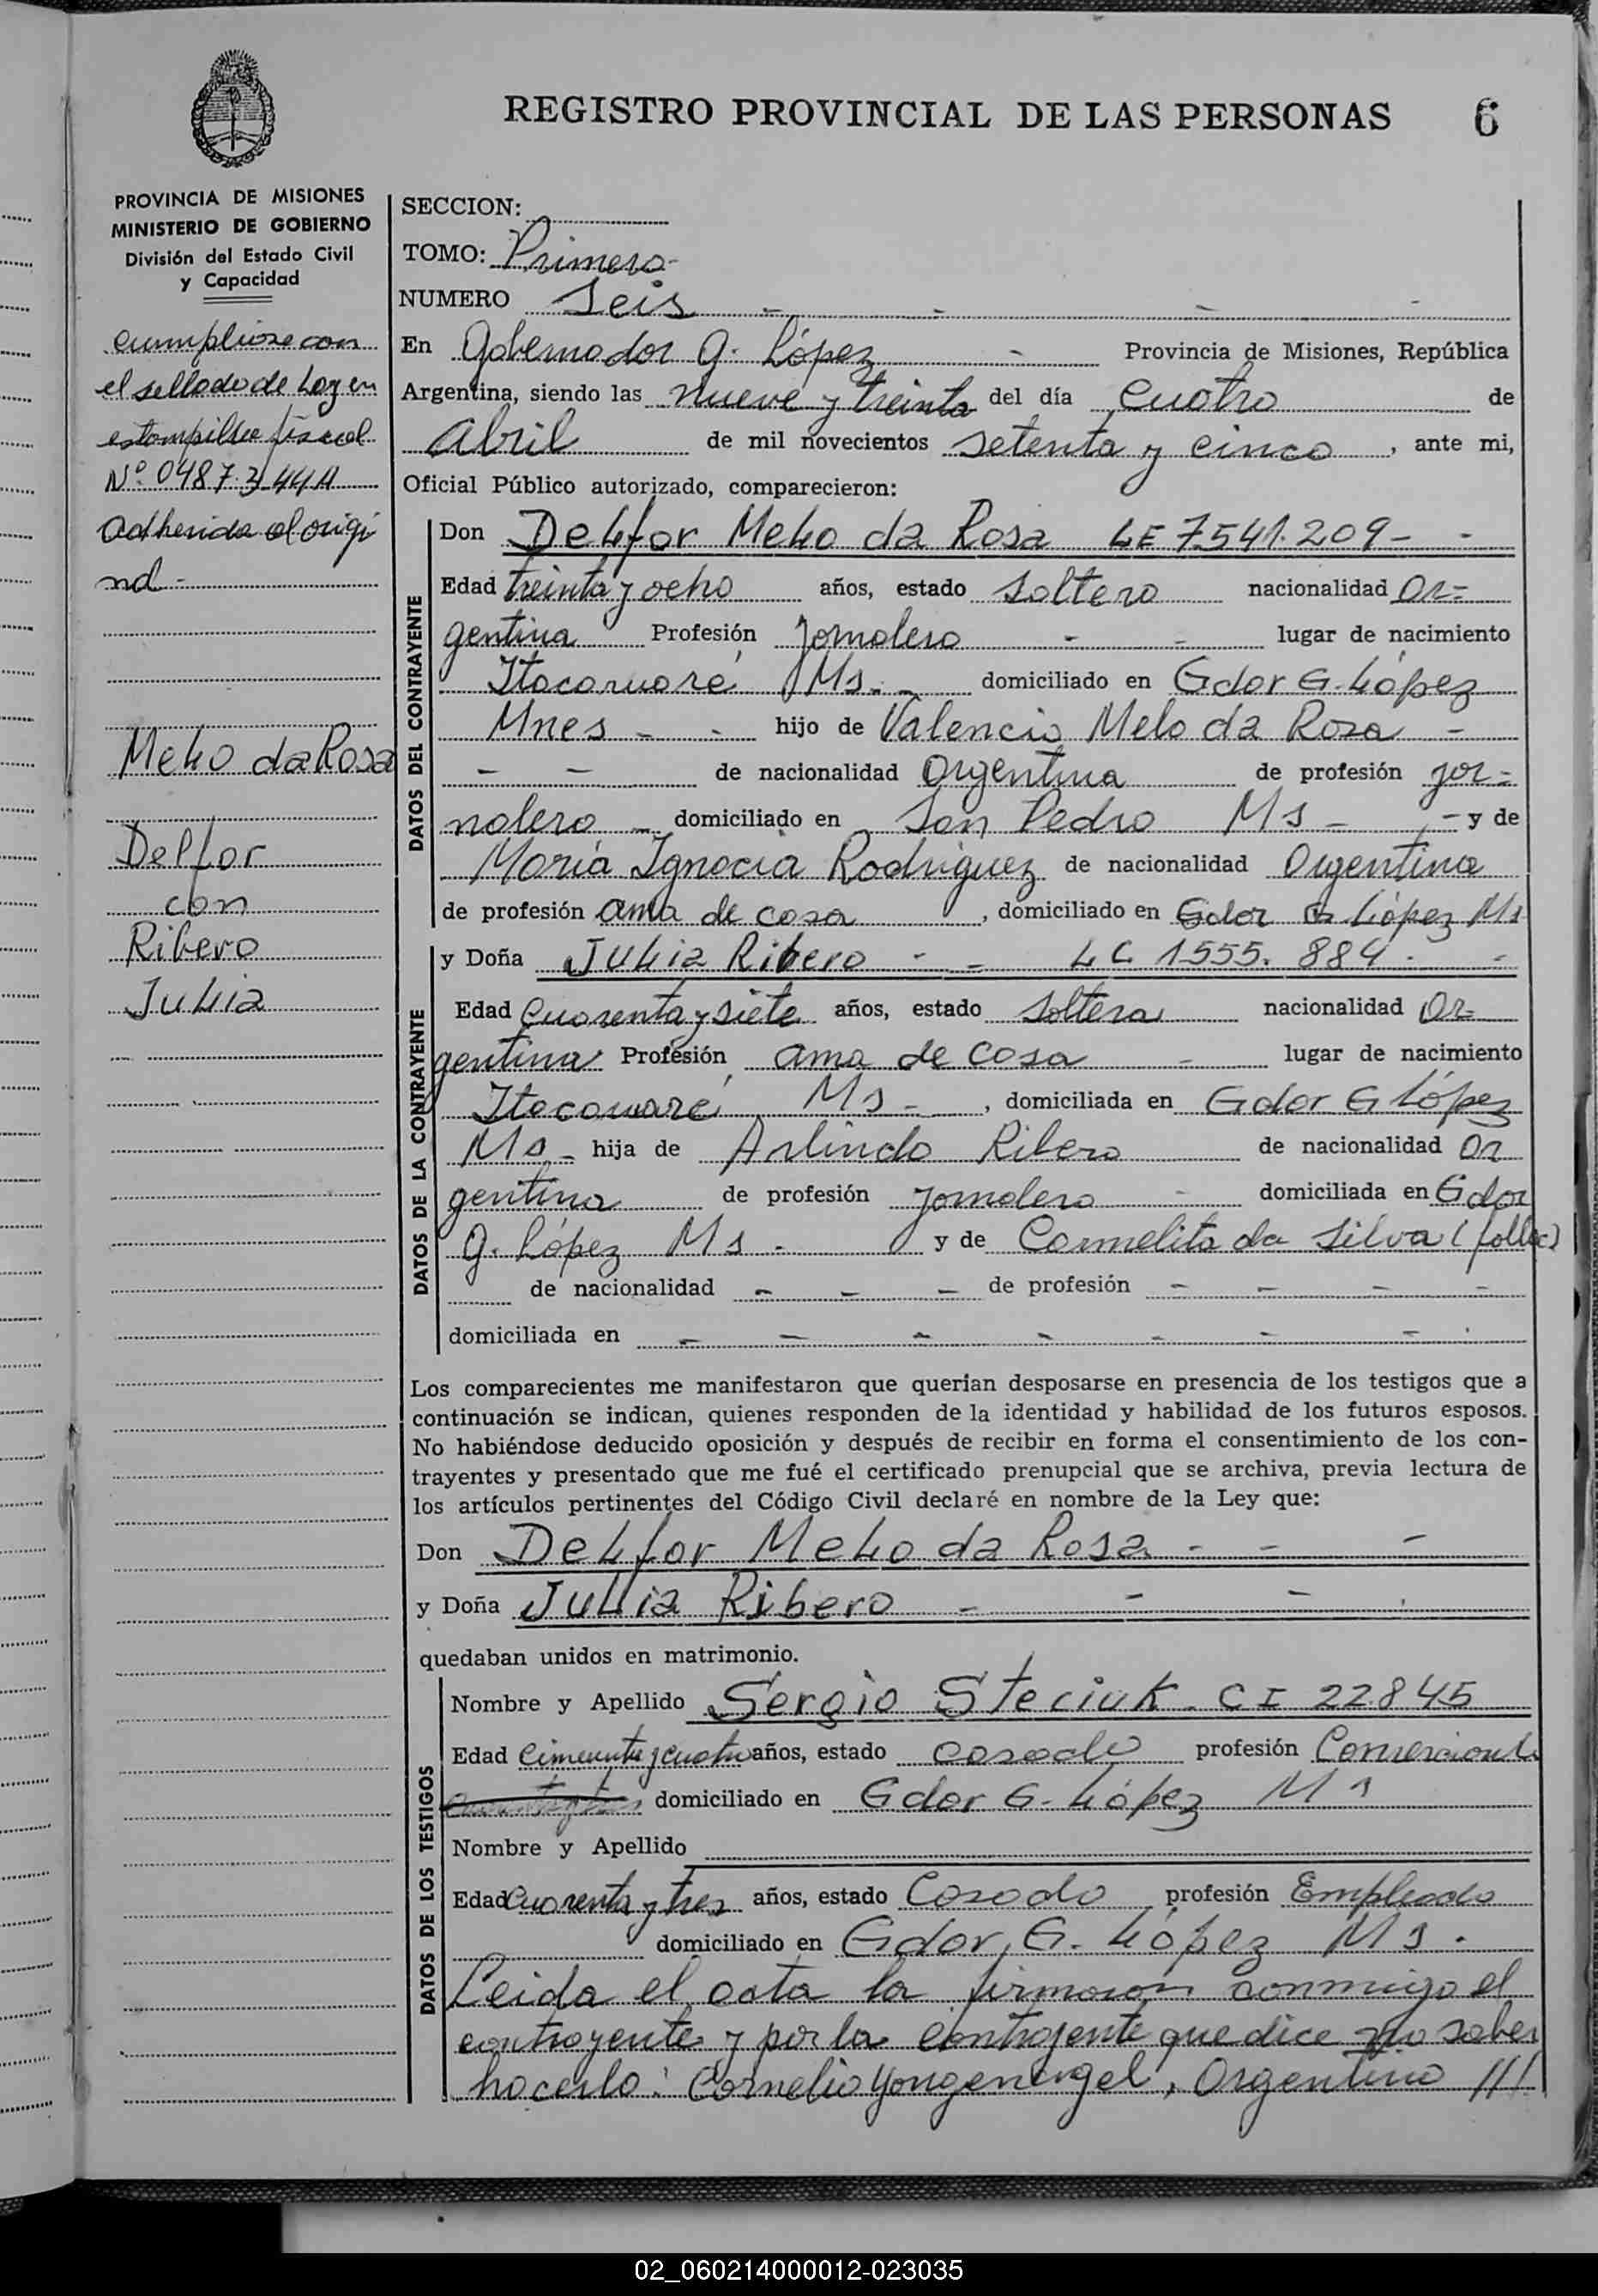 REGISTRO PROVINCIAL DE LAS PERSONAS 6
PROVINCIA DE MISIONES
MINISTERIO DE GOBIERNO
División del Estado Civil
y Capacidad
cumpliose con
el sellado de Ley en
estampilla fiscal
Nº 0487344A
adherida al origi
nal -
Melo da Rosa
Delfor
con
Ribero
Julia
SECCION:
TOMO: Primero -
NUMERO Seis - - - -
En Gobernador G. López - Provincia de Misiones, República
Argentina, siendo las nueve y treinta del día cuatro de
abril de mil novecientos setenta y cinco, ante mi,
Oficial Público autorizado, comparecieron:
DATOS DEL CONTRAYENTE
Don Delfor Melo da Rosa LE 7.541.209 - -
Edad treinta y ocho años, estado soltero nacionalidad ar=
gentina Profesión jornalero - - lugar de nacimiento
Itacaruaré Ms. - domiciliado en Gdor G. López
Mnes - - hijo de Valencio Melo da Rosa -
- - de nacionalidad argentina de profesión jor=
nalero - domiciliado en San Pedro Ms - - y de
María Ignacia Rodriguez de nacionalidad argentina
de profesión ama de casa, domiciliado en Gdor G. López Ms
DATOS DE LA CONTRAYENTE
y Doña Julia Ribero - - LC 1.555.884. -
Edad cuarenta y siete años, estado soltera nacionalidad ar=
gentina Profesión ama de casa - lugar de nacimiento
Itacaruaré Ms -, domiciliada en Gdor G López
Ms - hija de Arlindo Ribero de nacionalidad ar
gentina de profesión jornalero - domiciliada en Gdor
G. López Ms - y de Carmelita da Silva (fallec)
de nacionalidad - - - de profesión - - - -
domiciliada en - - - - - - - -
Los comparecientes me manifestaron que querían desposarse en presencia de los testigos que a
continuación se indican, quienes responden de la identidad y habilidad de los futuros esposos.
No habiéndose deducido oposición y después de recibir en forma el consentimiento de los con-
trayentes y presentado que me fué el certificado prenupcial que se archiva, previa lectura de
los artículos pertinentes del Código Civil declaré en nombre de la Ley que:
Don Delfor Melo da Rosa - - -
y Doña Julia Ribero - - - .
quedaban unidos en matrimonio.
DATOS DE LOS TESTIGOS
Nombre y Apellido Sergio Steciuk CI 22.845
Edad cincuenta y cuatro años, estado casado profesión Comerciante
domiciliado en Gdor G. López Ms
Nombre y Apellido
Edad cuarenta y tres años, estado casado profesión Empleado
domiciliado en Gdor. G. López Ms.
Leida el acta la firmaron conmigo el
contrayente y por la contrayente que dice no saber
hacerlo: Cornelio Yongenengel, argentino ///
02_060214000012-023035